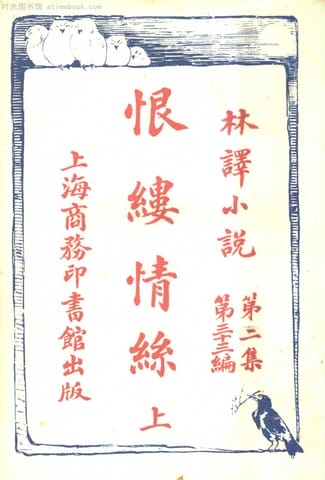 时光图书馆 · atimebook.com
林譯小説
第二集
第三十三編
恨縷情絲
上
上海商務印書館出版